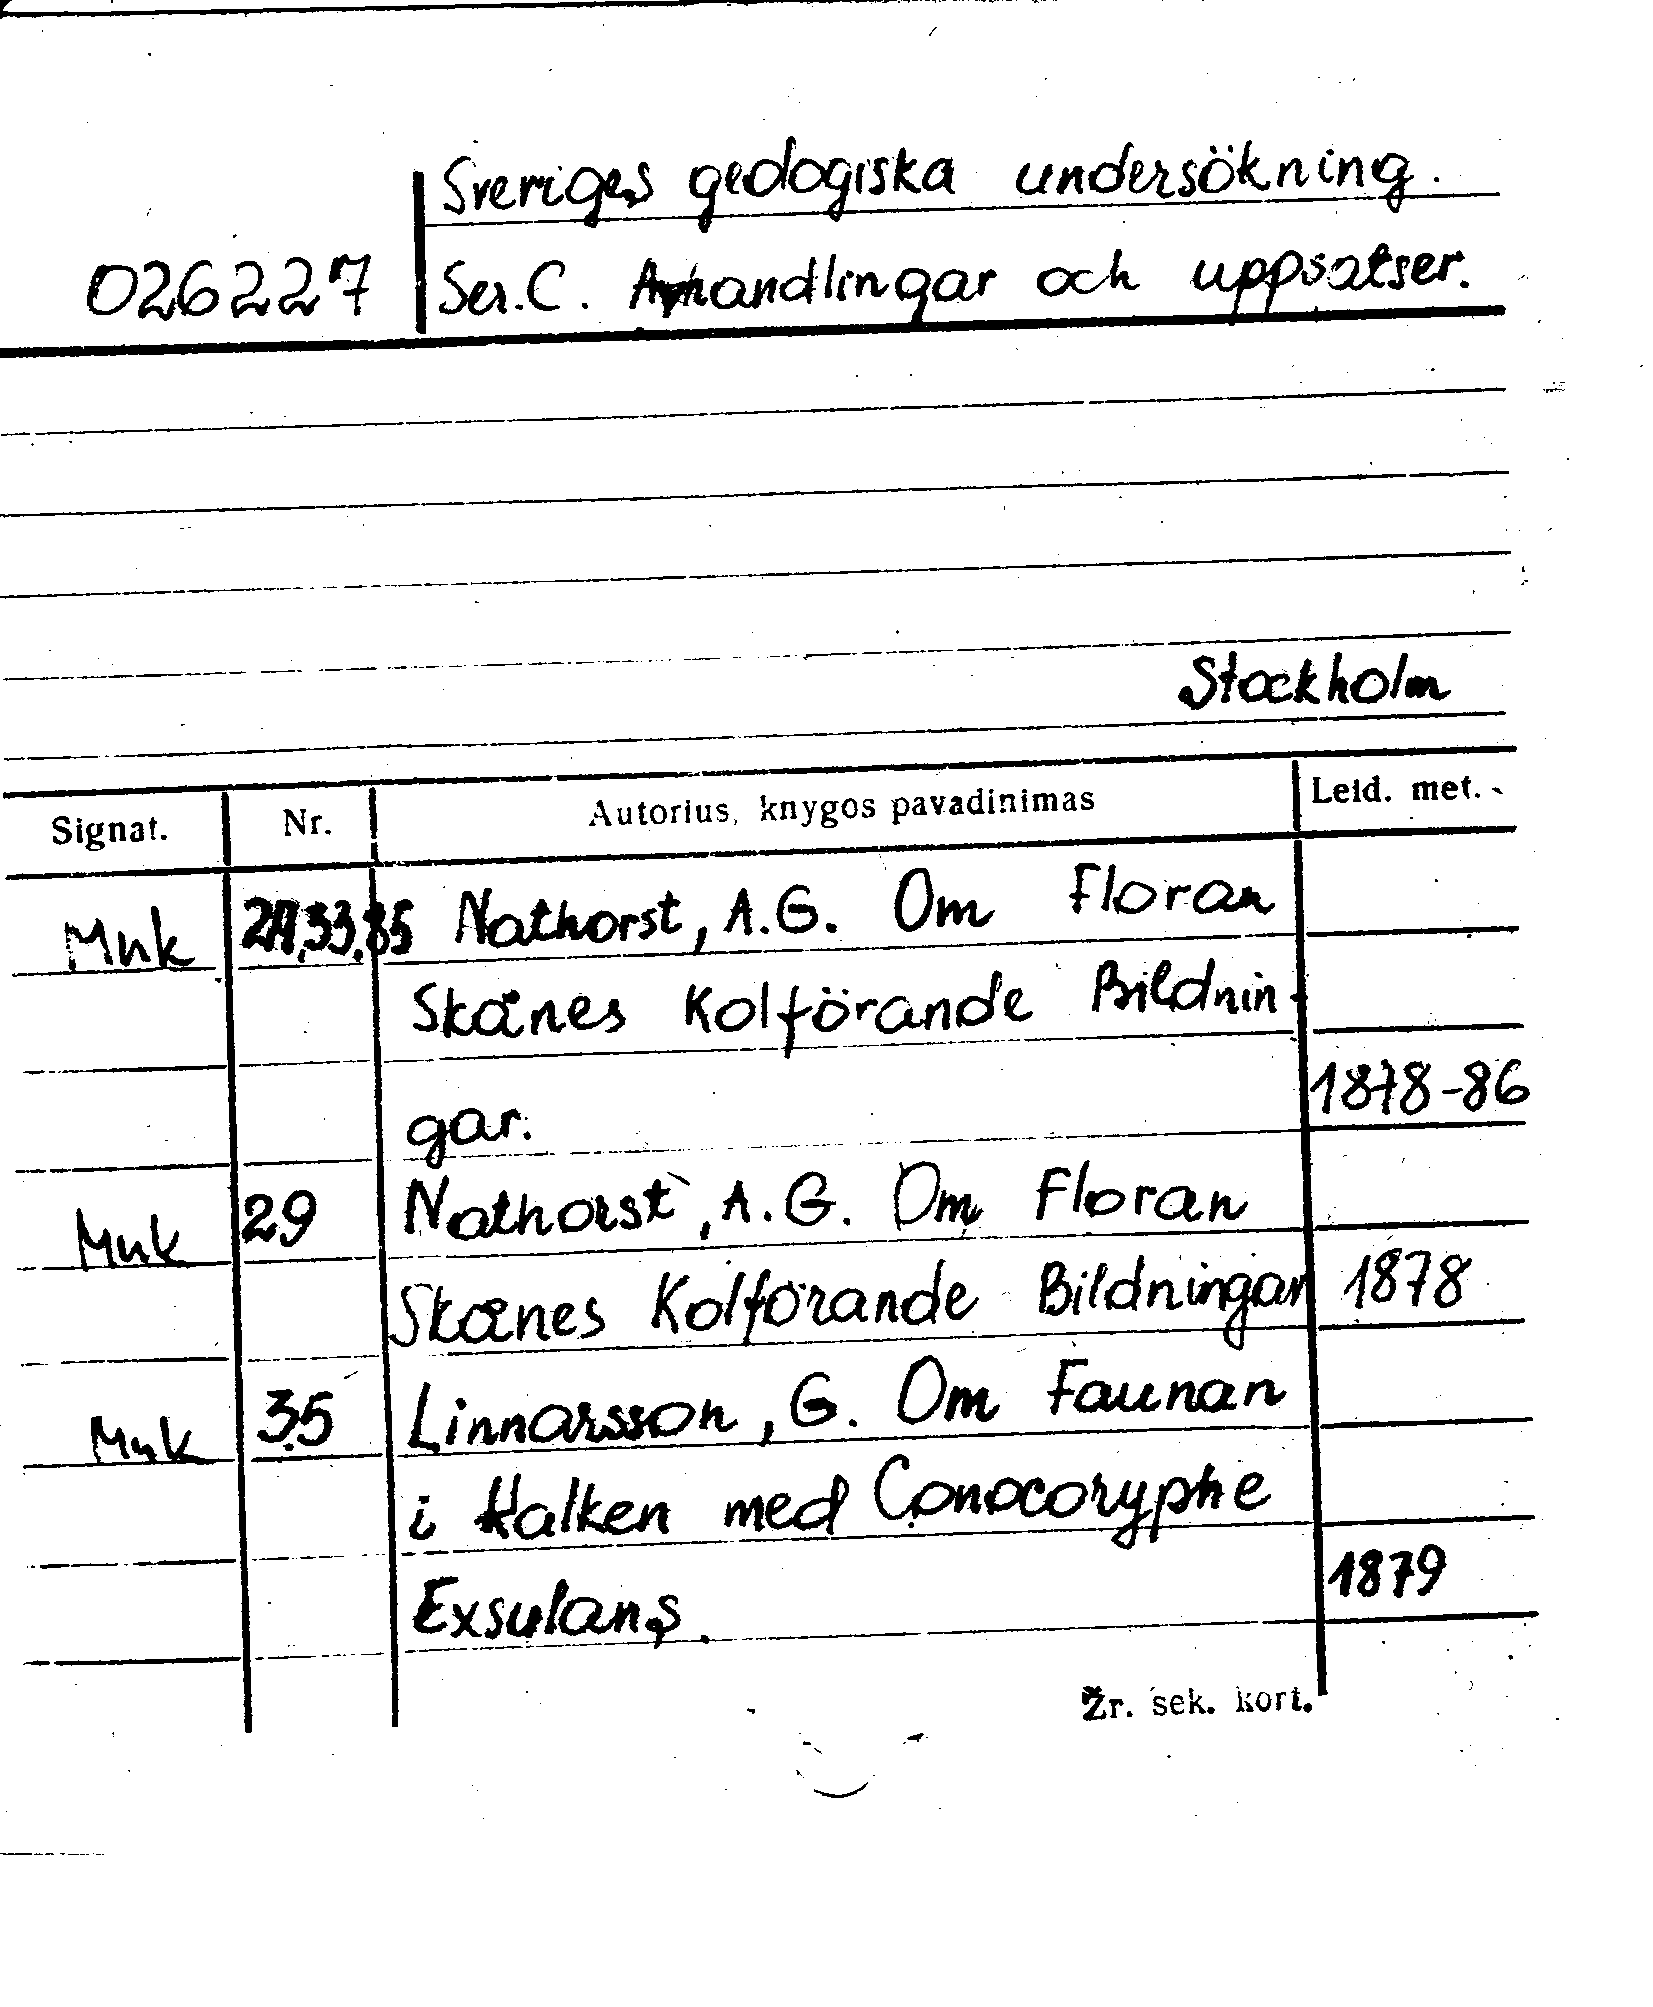 Sveriges geologiska undersökning.
026227 Ser.C. Afhandlingar och uppsatser.
Stockholm
Signat. Nr. Autorius, knygos pavadinimas Leid. met.
Mnk 33.85 Nathorst, A.G. Om Floran
Skånes Kolförande Bildnin-
gar. 1878-86
Mnk 29 Nathorst, A.G. Om Floran
Skånes Kolförande Bildningar 1878
Mnk 35 Linnarsson, G. Om Faunan
i Kalken med Conocoryphe
Exsulans. 1879
Žr. sek. kort.